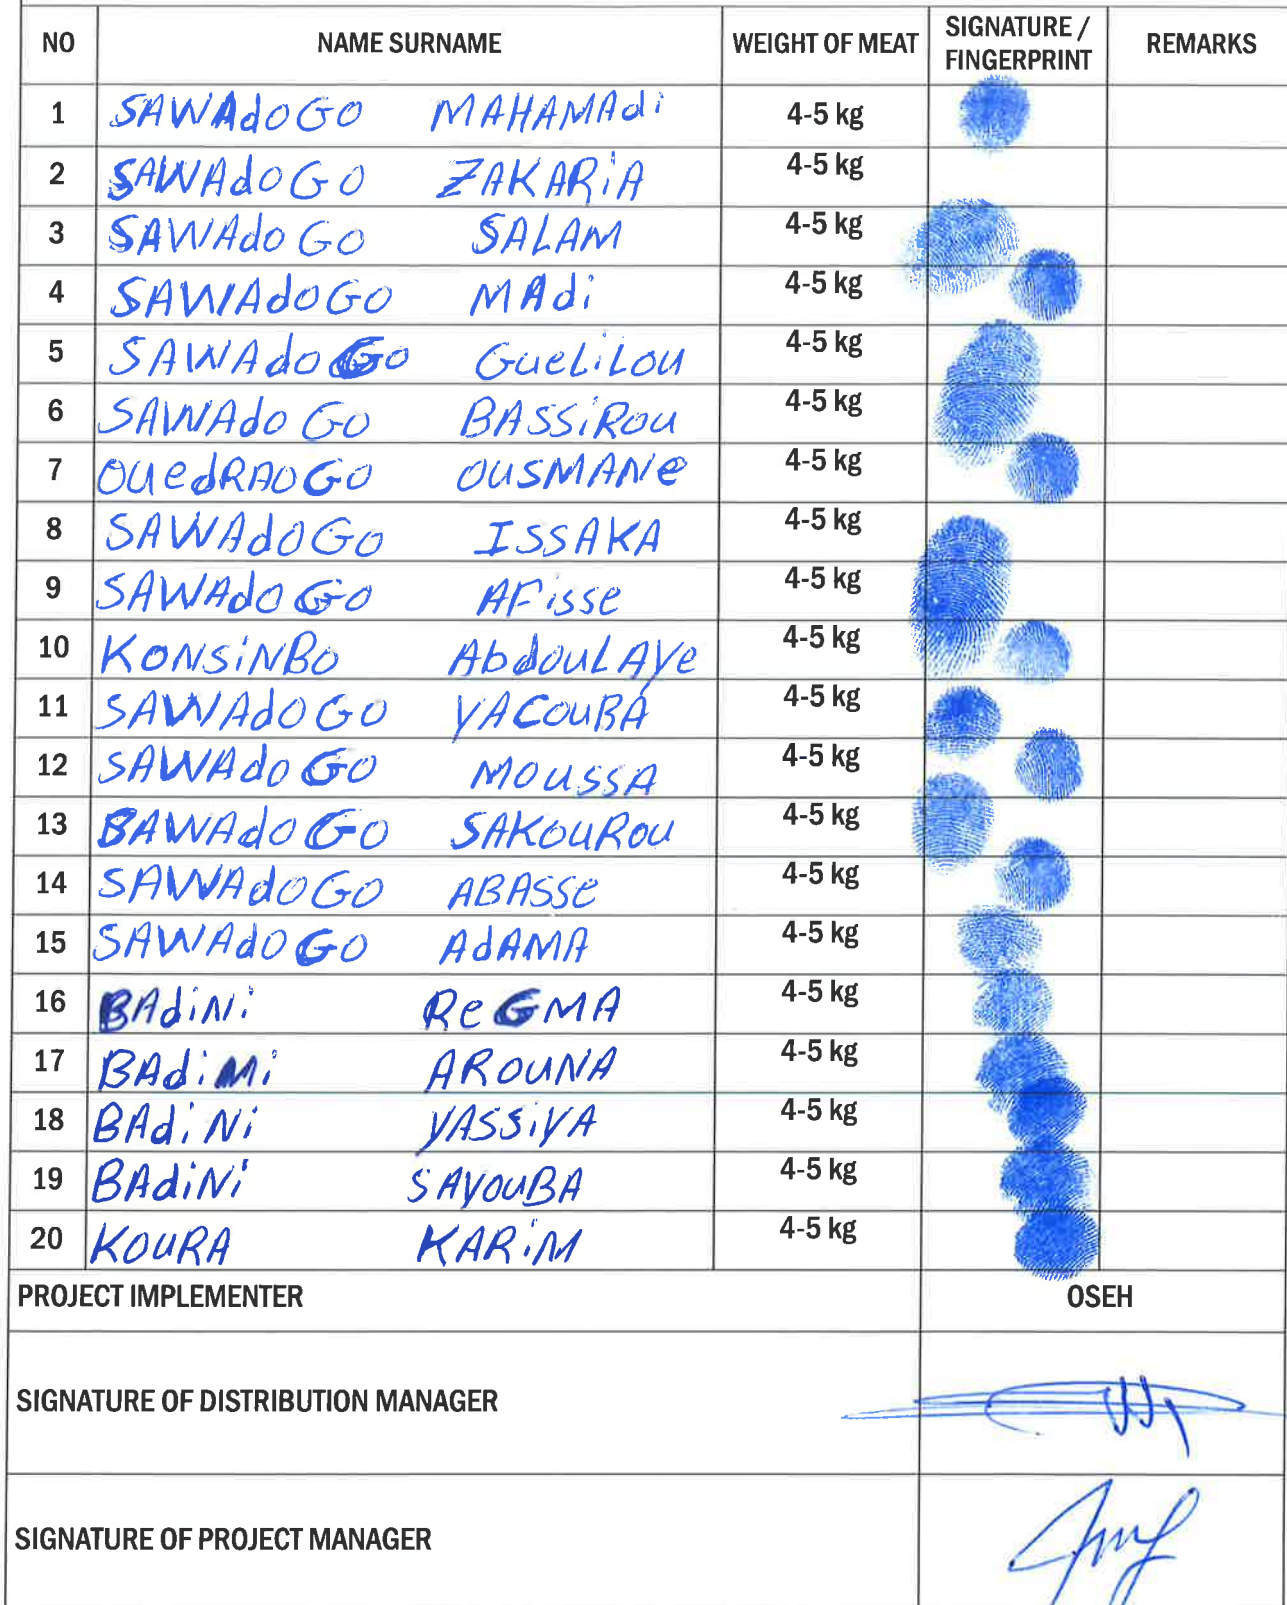 NO NAME SURNAME WEIGHT OF MEAT SIGNATURE / FINGERPRINT REMARKS
1 SAWAdOGO MAHAMAdi 4-5 kg
2 SAWAdOGO ZAKARiA 4-5 kg
3 SAWAdOGO SALAM 4-5 kg
4 SAWAdOGO MAdi 4-5 kg
5 SAWAdOGO GueLiLou 4-5 kg
6 SAWAdOGO BASSiRou 4-5 kg
7 OUedRAOGO OUSMANe 4-5 kg
8 SAWAdOGO ISSAKA 4-5 kg
9 SAWAdOGO AFisse 4-5 kg
10 KONSiNBO AbdouLAYe 4-5 kg
11 SAWAdOGO YACouBA 4-5 kg
12 SAWAdOGO MOUSSA 4-5 kg
13 BAWAdOGO SAKOURou 4-5 kg
14 SAWAdOGO ABASSe 4-5 kg
15 SAWAdOGO AdAMA 4-5 kg
16 BAdiNi ReGMA 4-5 kg
17 BAdiMi AROUNA 4-5 kg
18 BAdiNi YASSiYA 4-5 kg
19 BAdiNi SAYOUBA 4-5 kg
20 KOURA KARiM 4-5 kg
PROJECT IMPLEMENTER OSEH
SIGNATURE OF DISTRIBUTION MANAGER
SIGNATURE OF PROJECT MANAGER